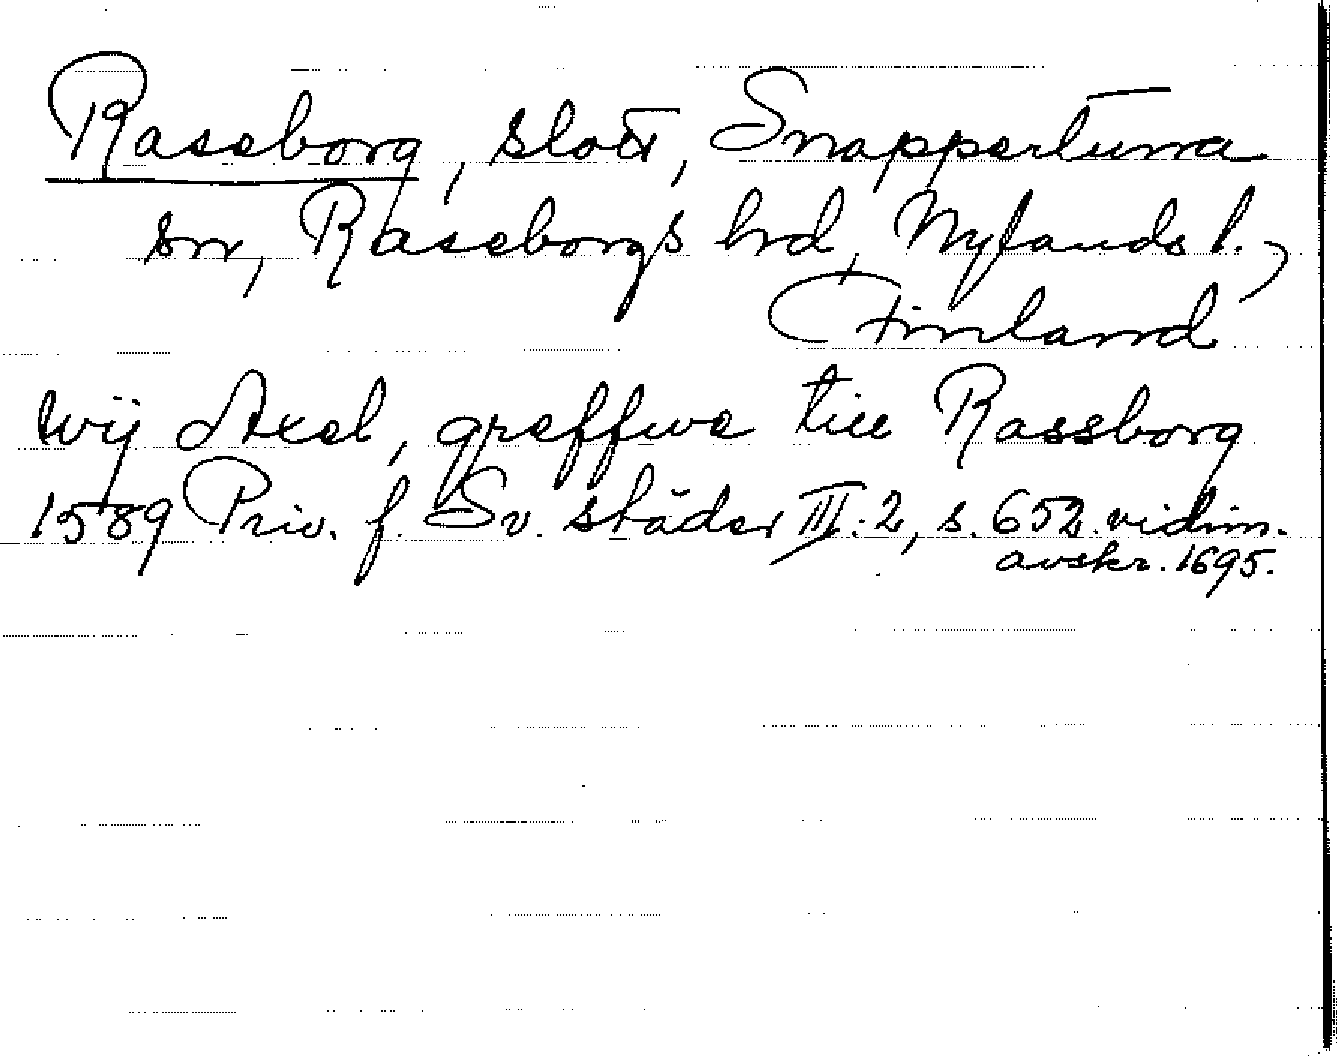 Raseborg, slott, Snappertuna
sn, Raseborgs hrd, Nylands l.,
Finland
Wij Axel, greffwe till Rassborg
1589 Priv. f. Sv. städer III:2, s. 652. vidim.
avskr. 1695.